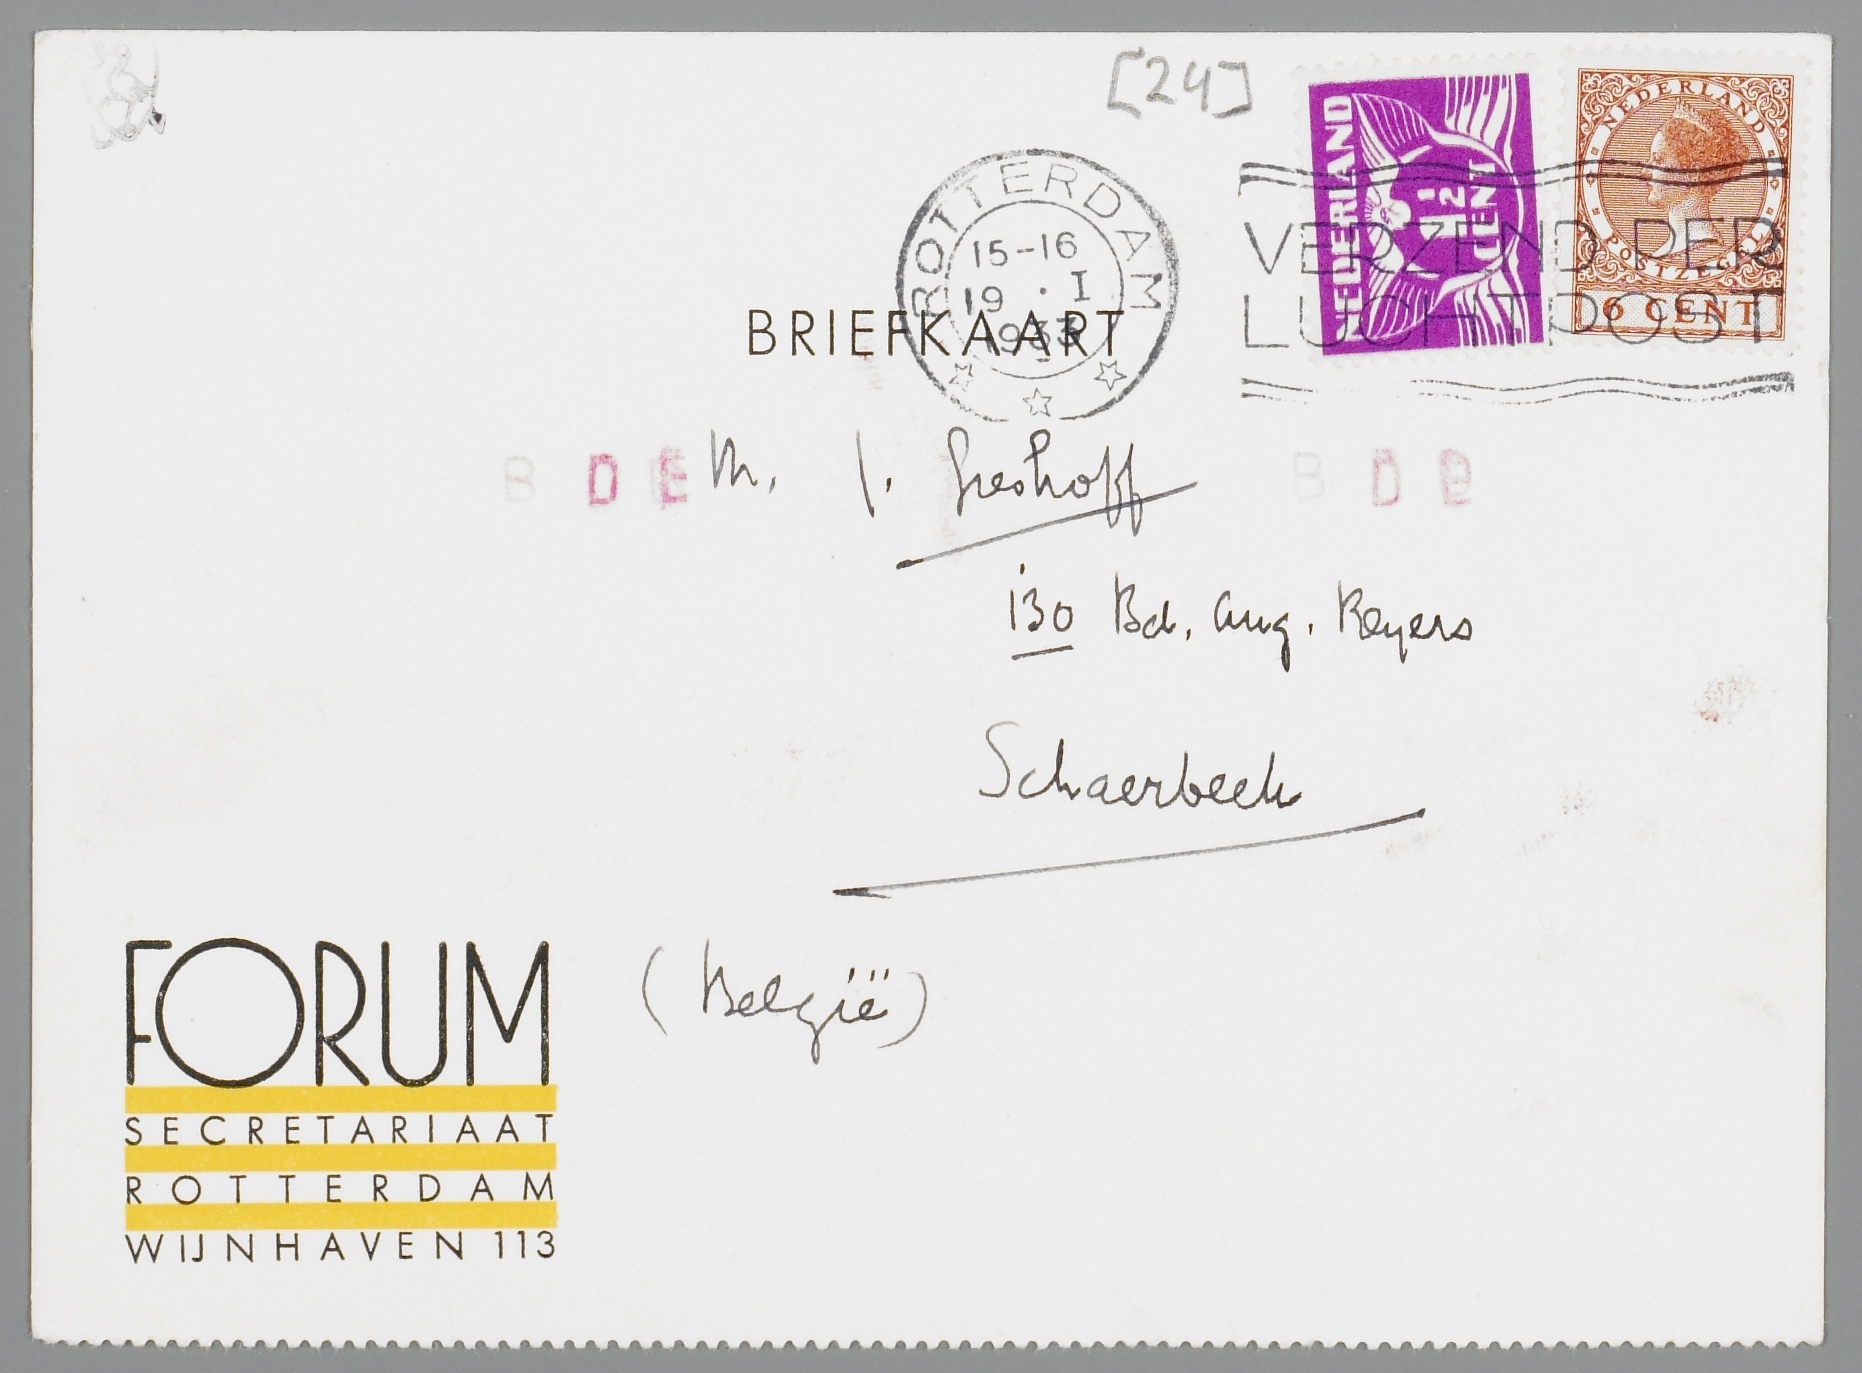 [24]
NEDERLAND
1½
CENT
NEDERLAND
POSTZEGEL
6 CENT
ROTTERDAM
15-16
19 · I
1933
VERZEND PER
LUCHTPOST
BRIEFKAART
B D E
B D E
M. J. Greshoff
130 Bd. Aug. Reyers
Schaerbeek
(België)
FORUM
SECRETARIAAT
ROTTERDAM
WIJNHAVEN 113